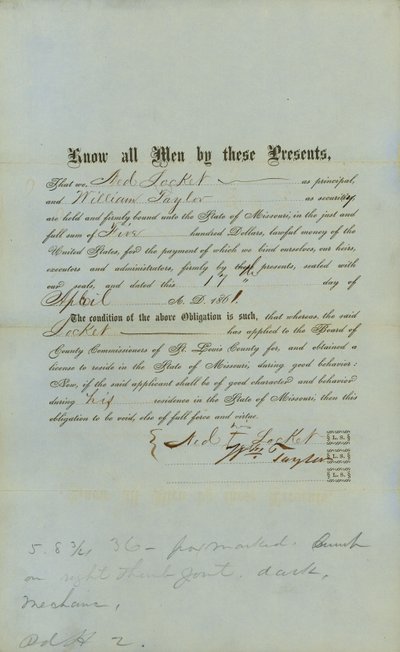 Know all Men by these Presents,
That we, Ned Locket as principal,
and William Taylor as security,
are held and firmly bound unto the State of Missouri, in the just and
full sum of Five hundred Dollars, lawful money of the
United States, for the payment of which we bind ourselves, our heirs,
executors and administrators, firmly by these presents, sealed with
our seals, and dated this 17th day of
April A. D. 1861.
The condition of the above Obligation is such, that whereas, the said
Locket has applied to the Board of
County Commissioners of St. Louis County for, and obtained a
license to reside in the State of Missouri, during good behavior:
Now, if the said applicant shall be of good character and behavior
during his residence in the State of Missouri, then this
obligation to be void, else of full force and virtue.
Ned Locket L. S.
Wm Taylor L. S.
L. S.
5. 8 3/4 36 - pox marked.
on right thumb joint. dark.
Mechanic,
Pd H 2.